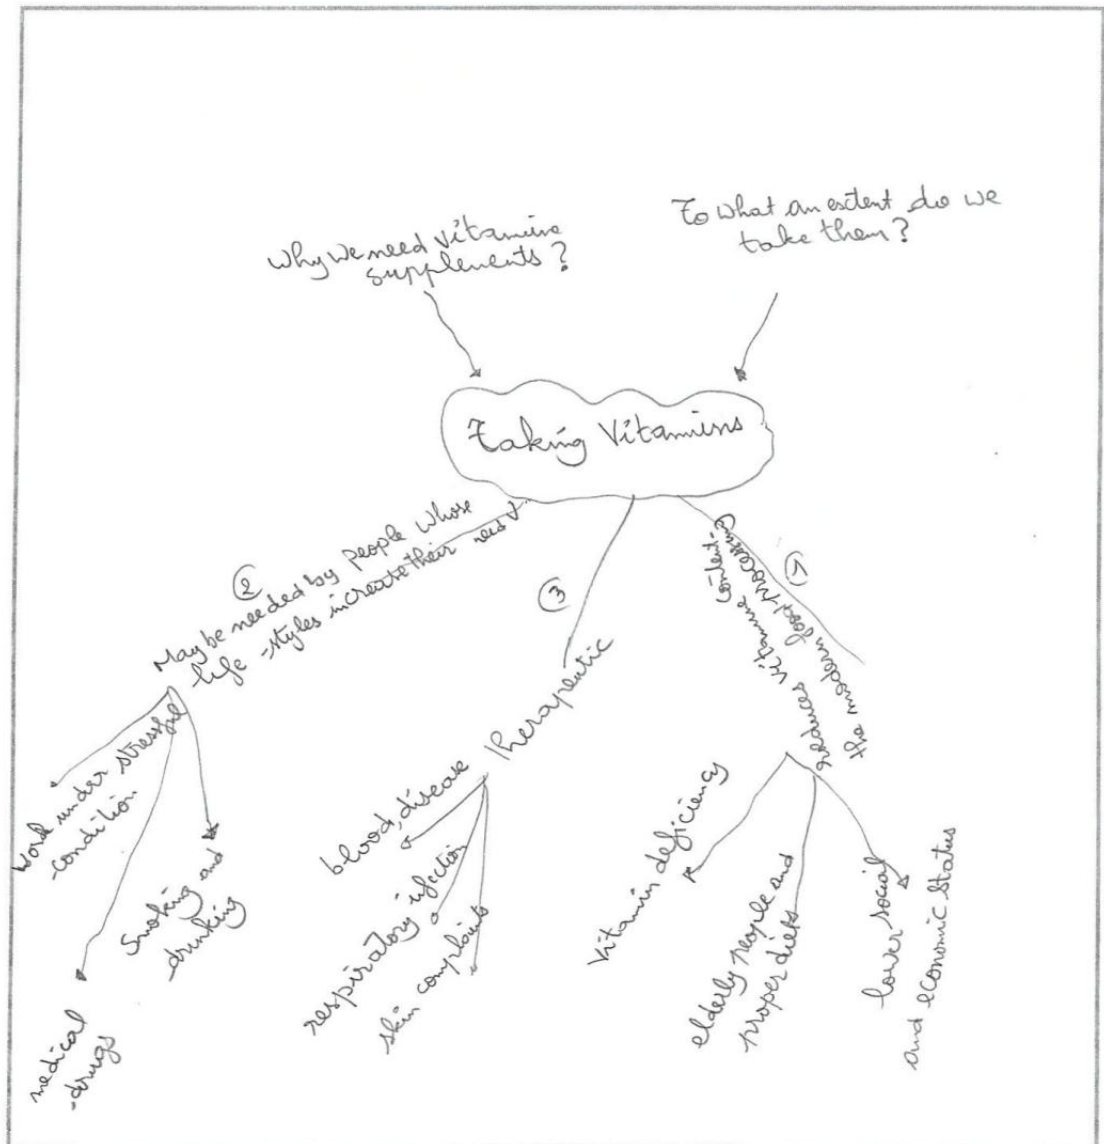 Why we need vitamine
supplements?
To what an extent do we
take them?
Taking Vitamins
②
May be needed by people whose
life-styles increase their need
work under stressful
-condition
medical
-drugs
Smoking and
-drinking
③
Therapeutic
blood, disease
respiratory infection
skin complaints
①
the modern food processing
reduces vitamine content-
Vitamin deficiency
elderly people and
proper diets
lower social
and economic status